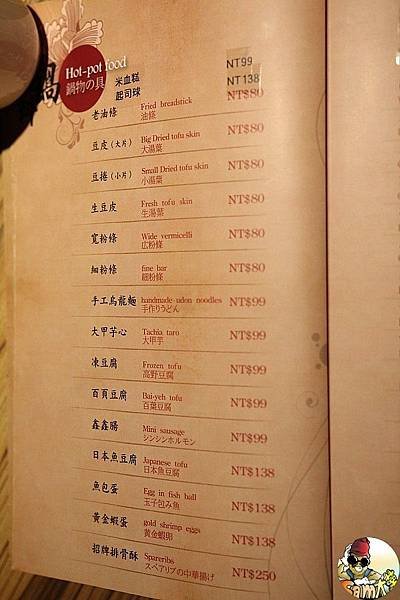 Hot-pot food
鍋物の具
米血糕 NT99
起司球 NT138
老油條 Fried breadstick NT$80
油條
豆皮(大片) Big Dried tofu skin NT$80
大湯葉
豆捲(小片) Small Dried tofu skin NT$80
小湯葉
生豆皮 Fresh tofu skin NT$80
生湯葉
寬粉條 Wide vermicelli NT$80
広粉條
細粉條 fine bar NT$80
細粉條
手工烏龍麵 handmade udon noodles NT$99
手作りうどん
大甲芋心 Tachia taro NT$99
大甲芋
凍豆腐 Frozen tofu NT$99
高野豆腐
百頁豆腐 Bai-yeh tofu NT$99
百葉豆腐
鑫鑫腸 Mini sausage NT$99
シンシンホルモン
日本魚豆腐 Japanese tofu NT$138
日本魚豆腐
魚包蛋 Egg in fish ball NT$138
玉子包み魚
黃金蝦蛋 gold shrimp eggs NT$138
黄金蝦卵
招牌排骨酥 Spareribs NT$250
スペアリブの中華揚げ